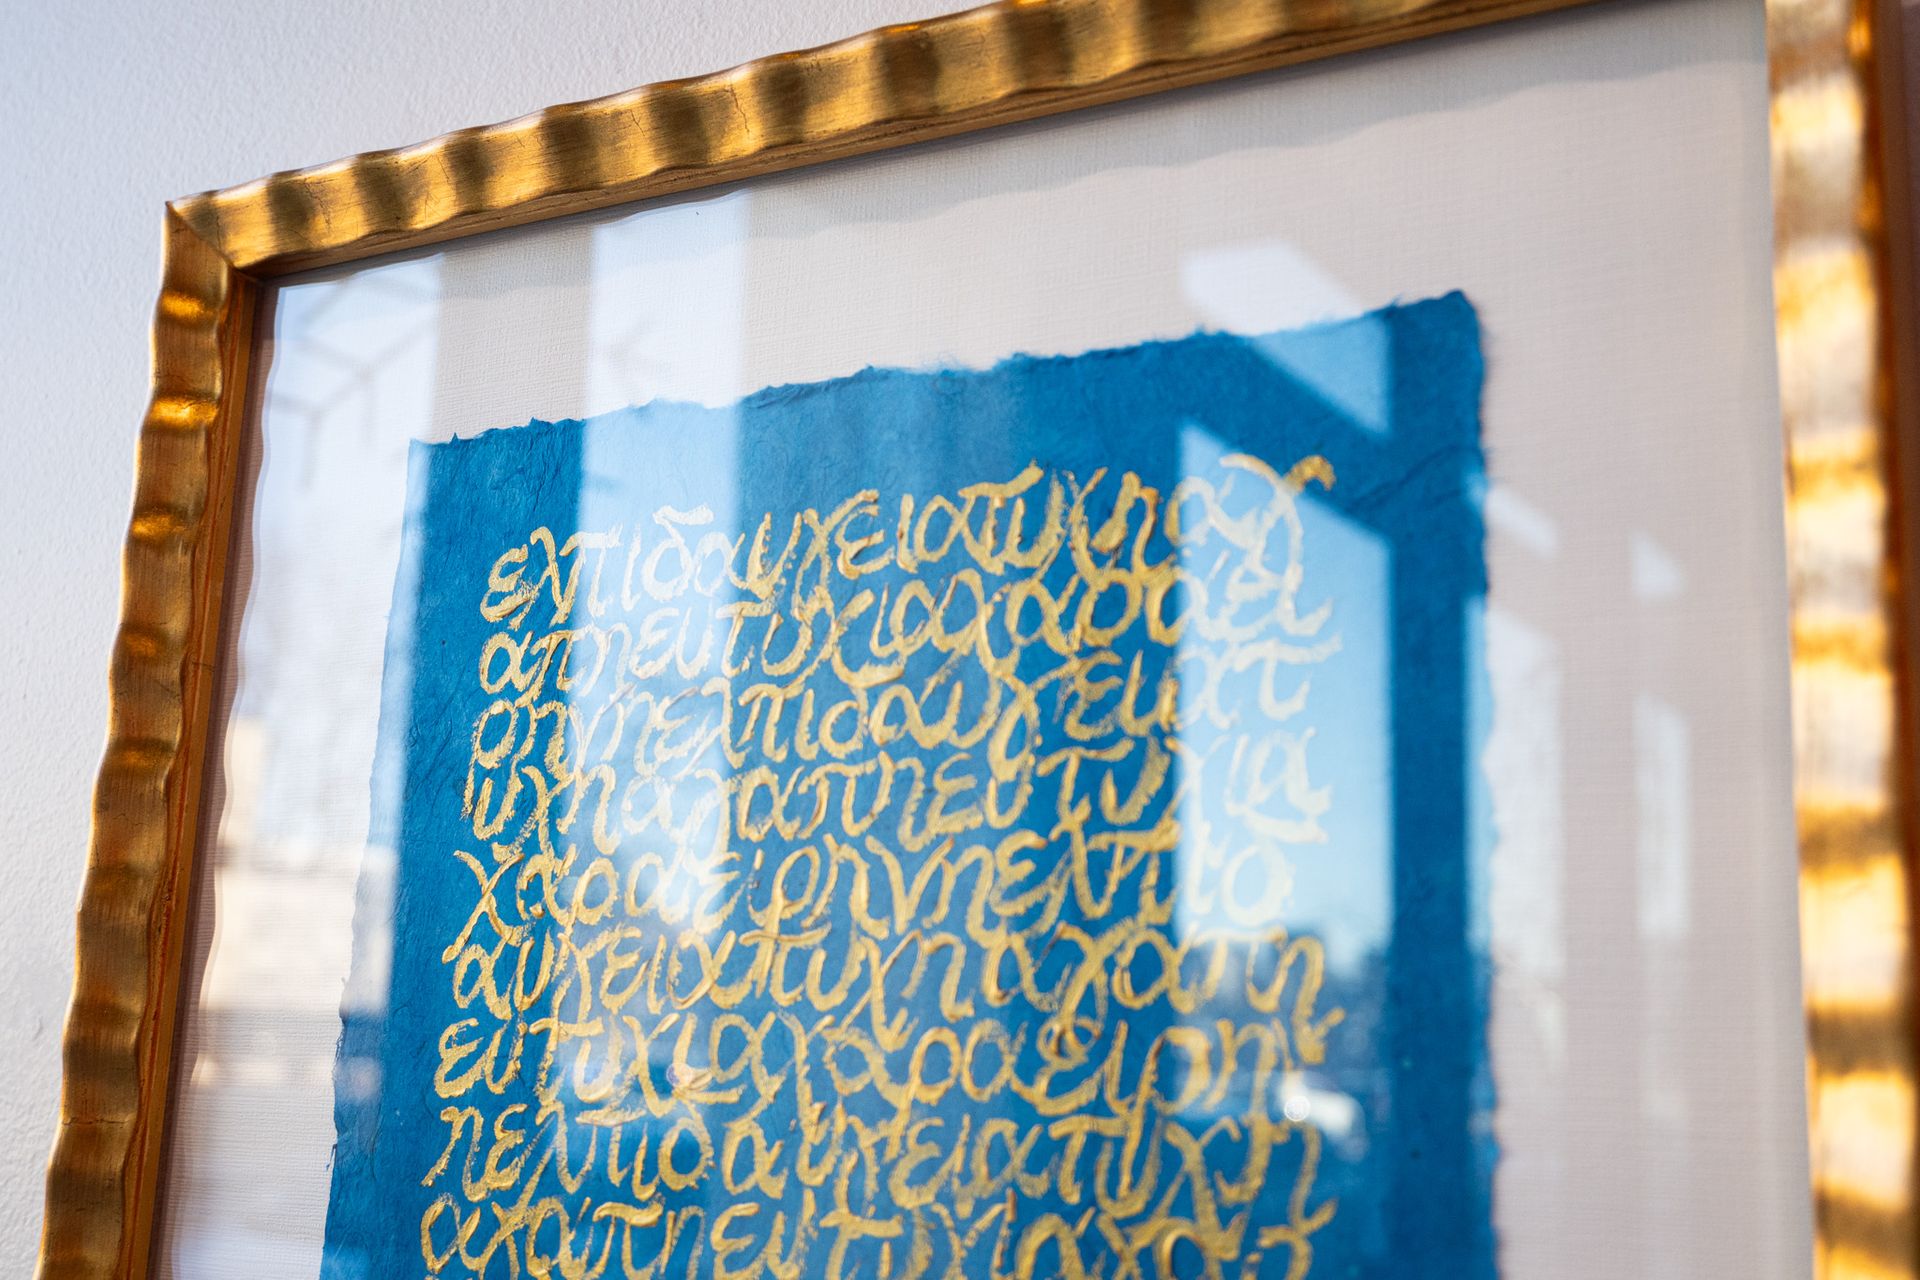 ελπιδαυγειατυχηαγ
απηευτυχιαχαραει
ρηνηελπιδαυγειατ
υχηαγαπηευτυχια
χαραειρηνηελπιδ
αυγειατυχηαγαπη
ευτυχιαχαραειρη
νηελπιδαυγειατυχη
αγαπηευτυχιαχαρ